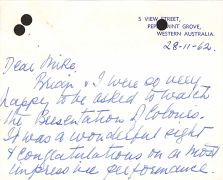 5 VIEW STREET,
PEPPERMINT GROVE,
WESTERN AUSTRALIA.
28-11-62.
Dear Mike,
Brian & I were so very
happy to be asked to watch
the Presentation of Colours.
It was a wonderful sight
& congratulations on a most
impressive performance